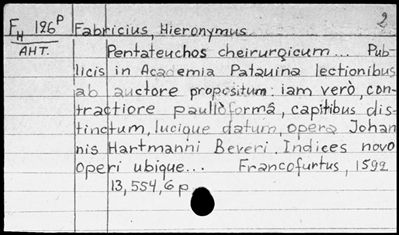 F_H 126^P Fabricius, Hieronymus 2
AHT. Pentateuchos cheirurgicum... Pub-
licis in Academia Patauina lectionibus
ab auctore propositum: iam verò, con-
tractiore paullò formâ, capitibus dis-
tinctum, lucique datum, opera Johan
nis Hartmanni Beyeri. Indices novo
operi ubique... Francofurtus, 1592
13,554,6 p.